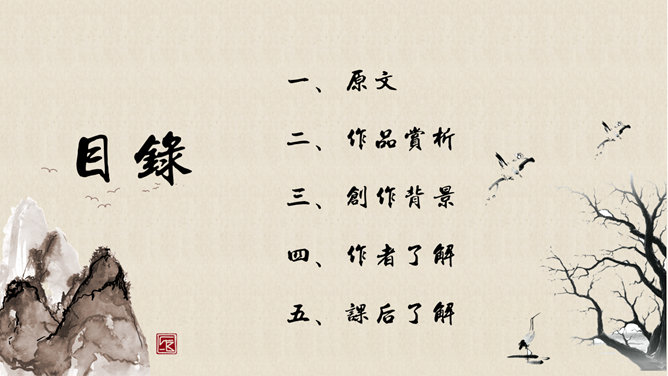 目錄
一、原文
二、作品賞析
三、創作背景
四、作者了解
五、課后了解